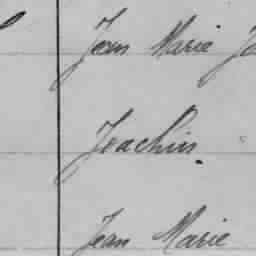 Jean Marie
Joachin
Jean Marie